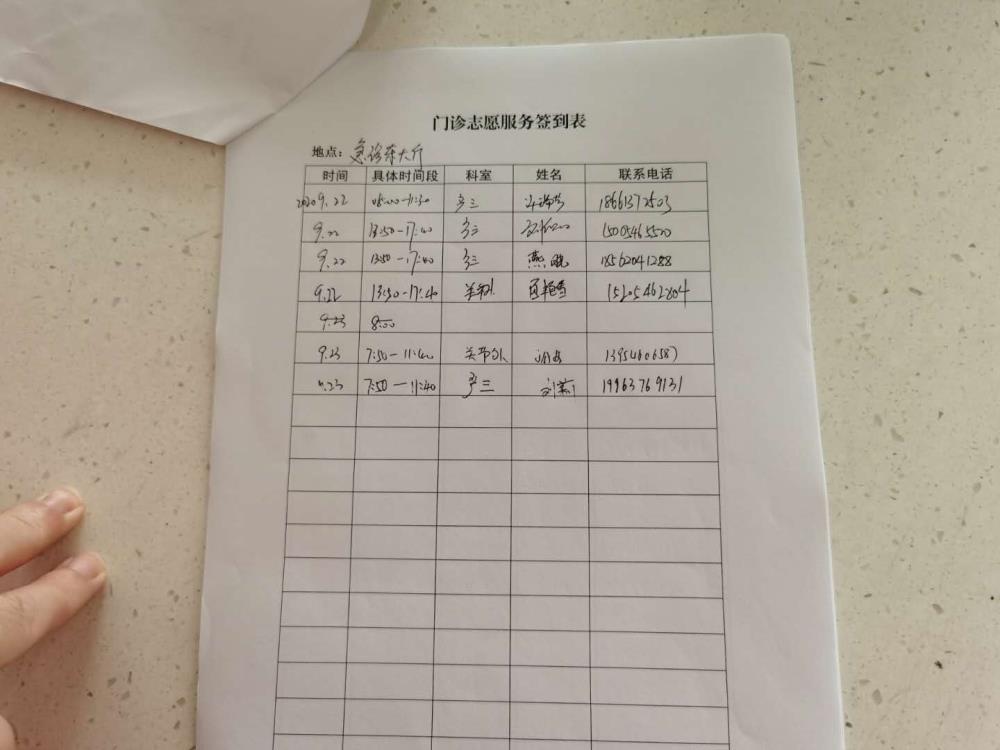 门诊志愿服务签到表
地点：急诊东大厅
时间 具体时间段 科室 姓名 联系电话
2020 9.22 08:00-11:30 产三 18661372503
9.22 13:50-17:40 产三 15005465520
9.22 13:50-17:40 产三 燕晓 18562041288
9.22 13:50-17:40 关节外 15205462804
9.23 8:00
9.23 7:50-11:40 关节外 13954606587
9.23 7:50-11:40 产三 刘 19963769131